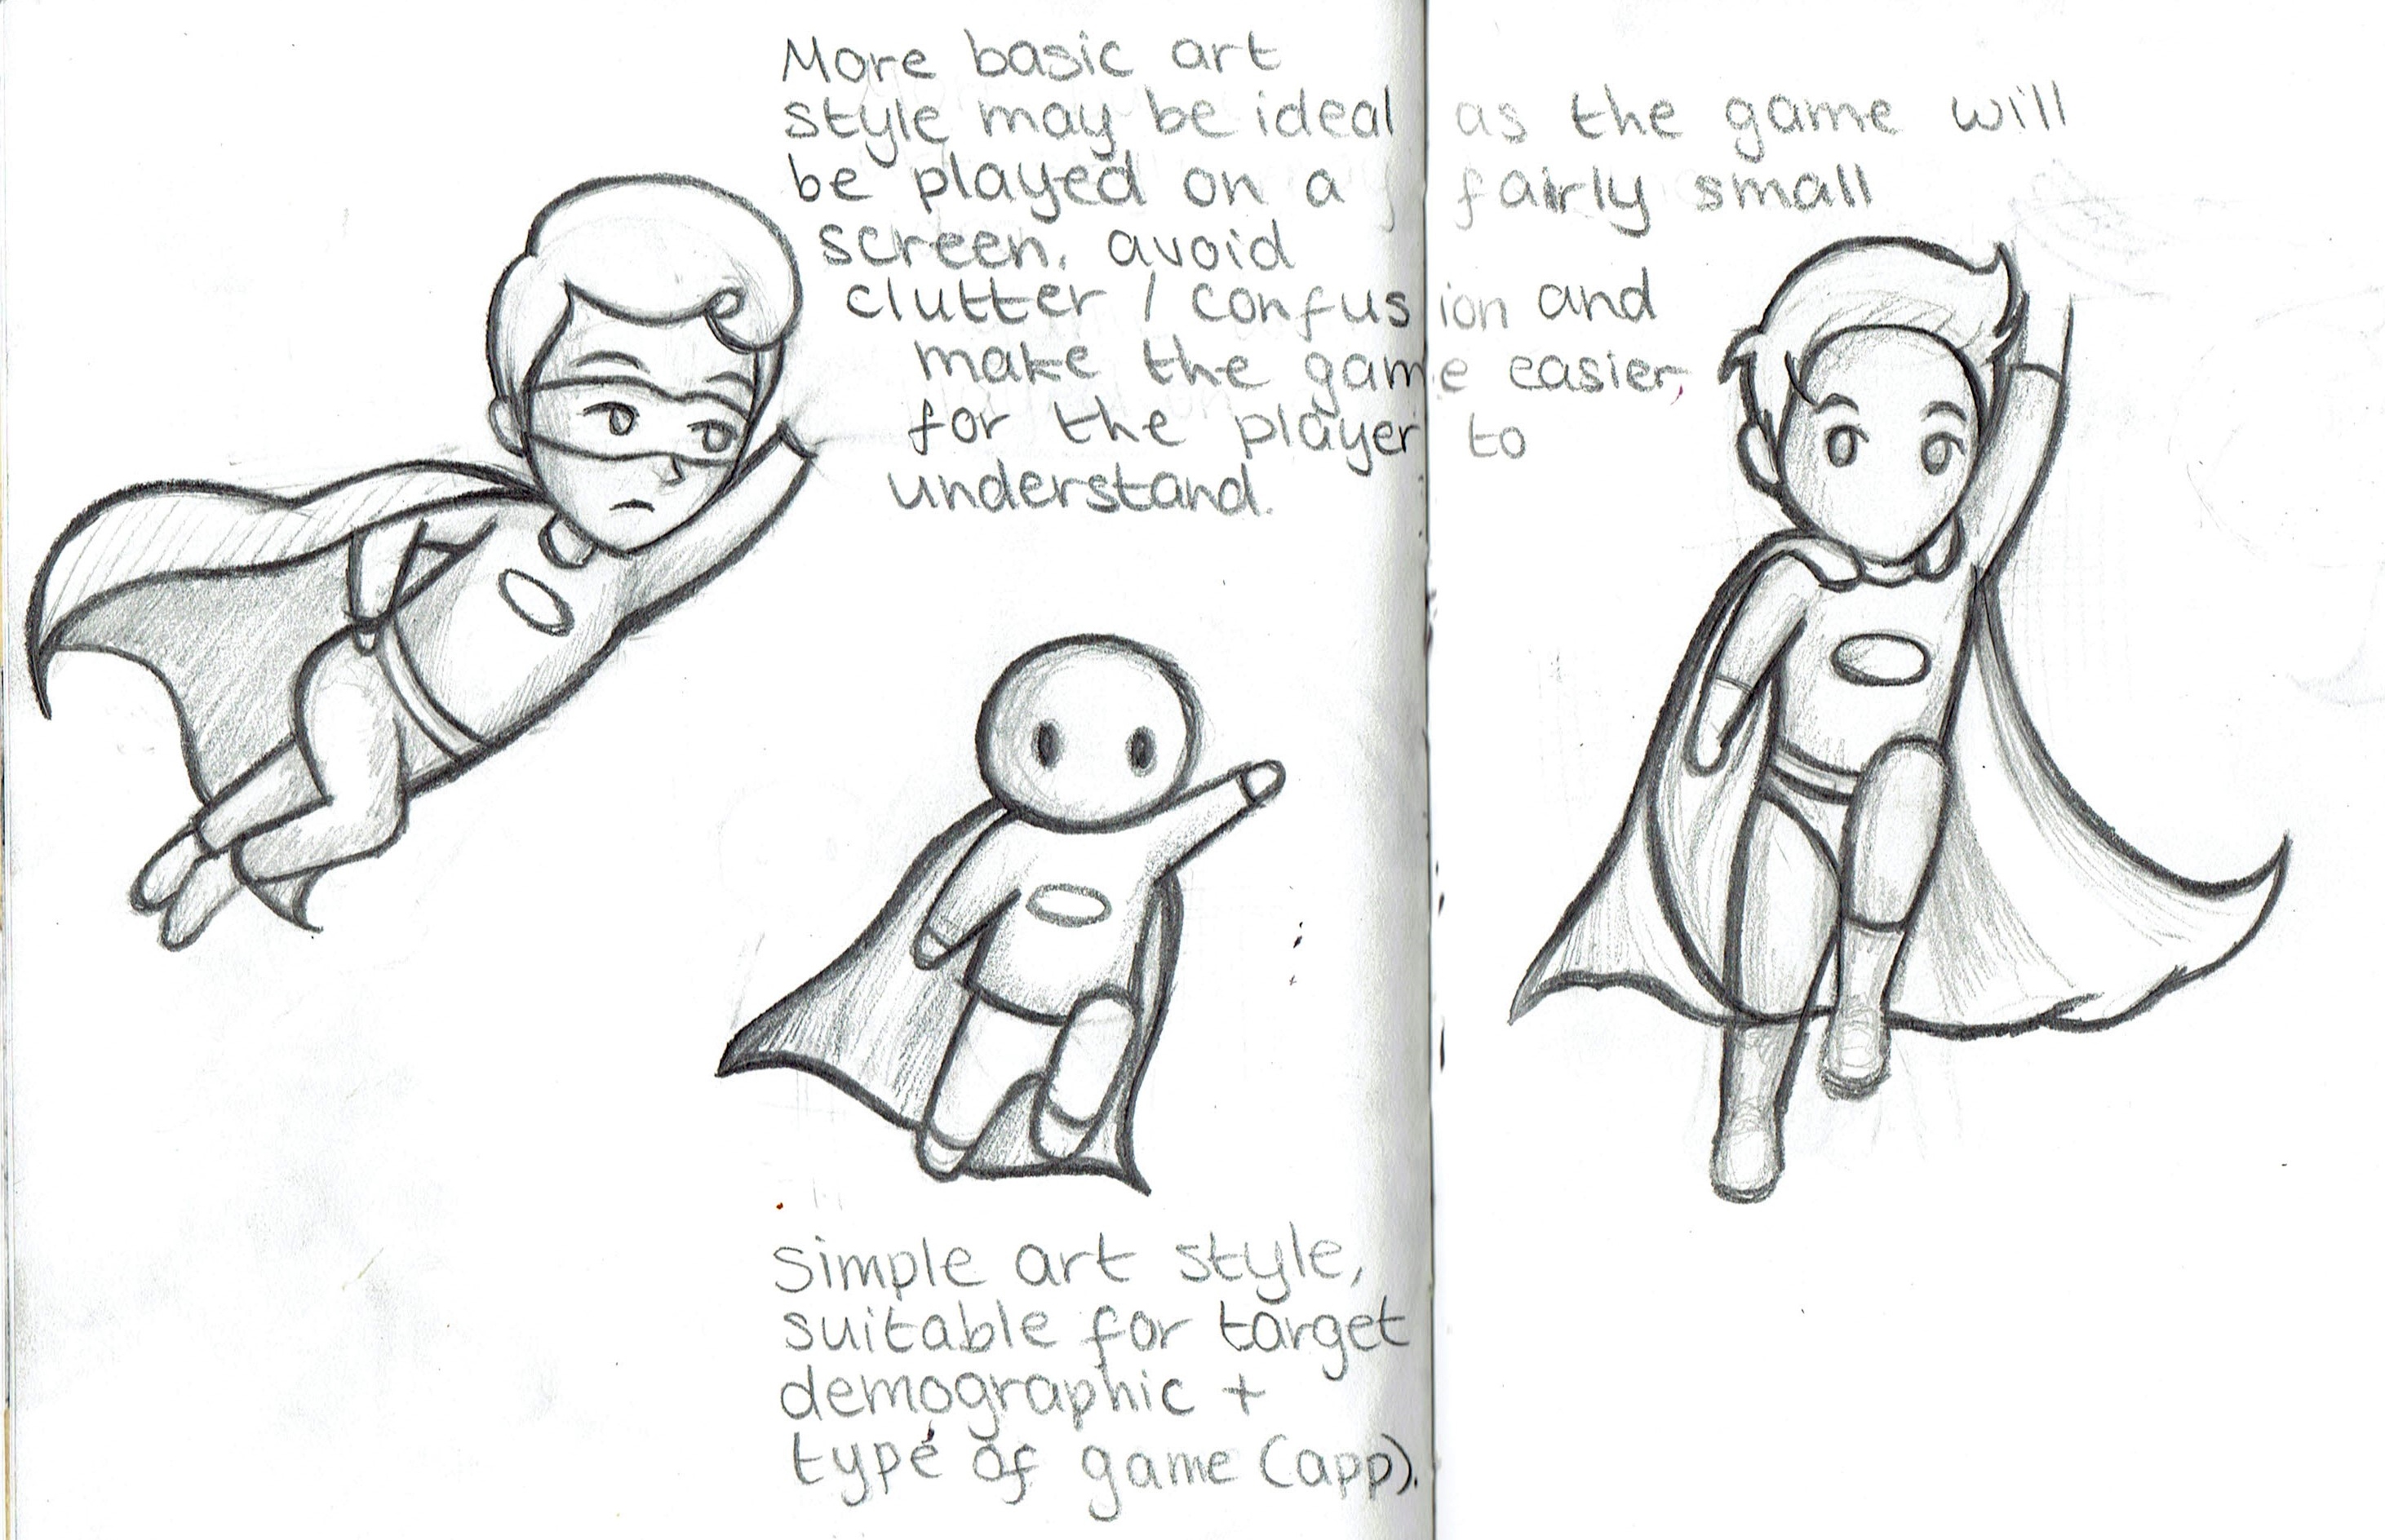 More basic art
style may be ideal as the game will
be played on a fairly small
screen. avoid
clutter / confusion and
make the game easier,
for the player to
understand.
Simple art style,
suitable for target
demographic +
type of game (app).